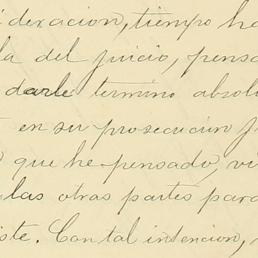 ideracion, tiempo ha
la del juicio, pensa
darle termino absolu
en su prosecucion
que he pensado, vi
las otras partes para
iste. Con tal intencion,